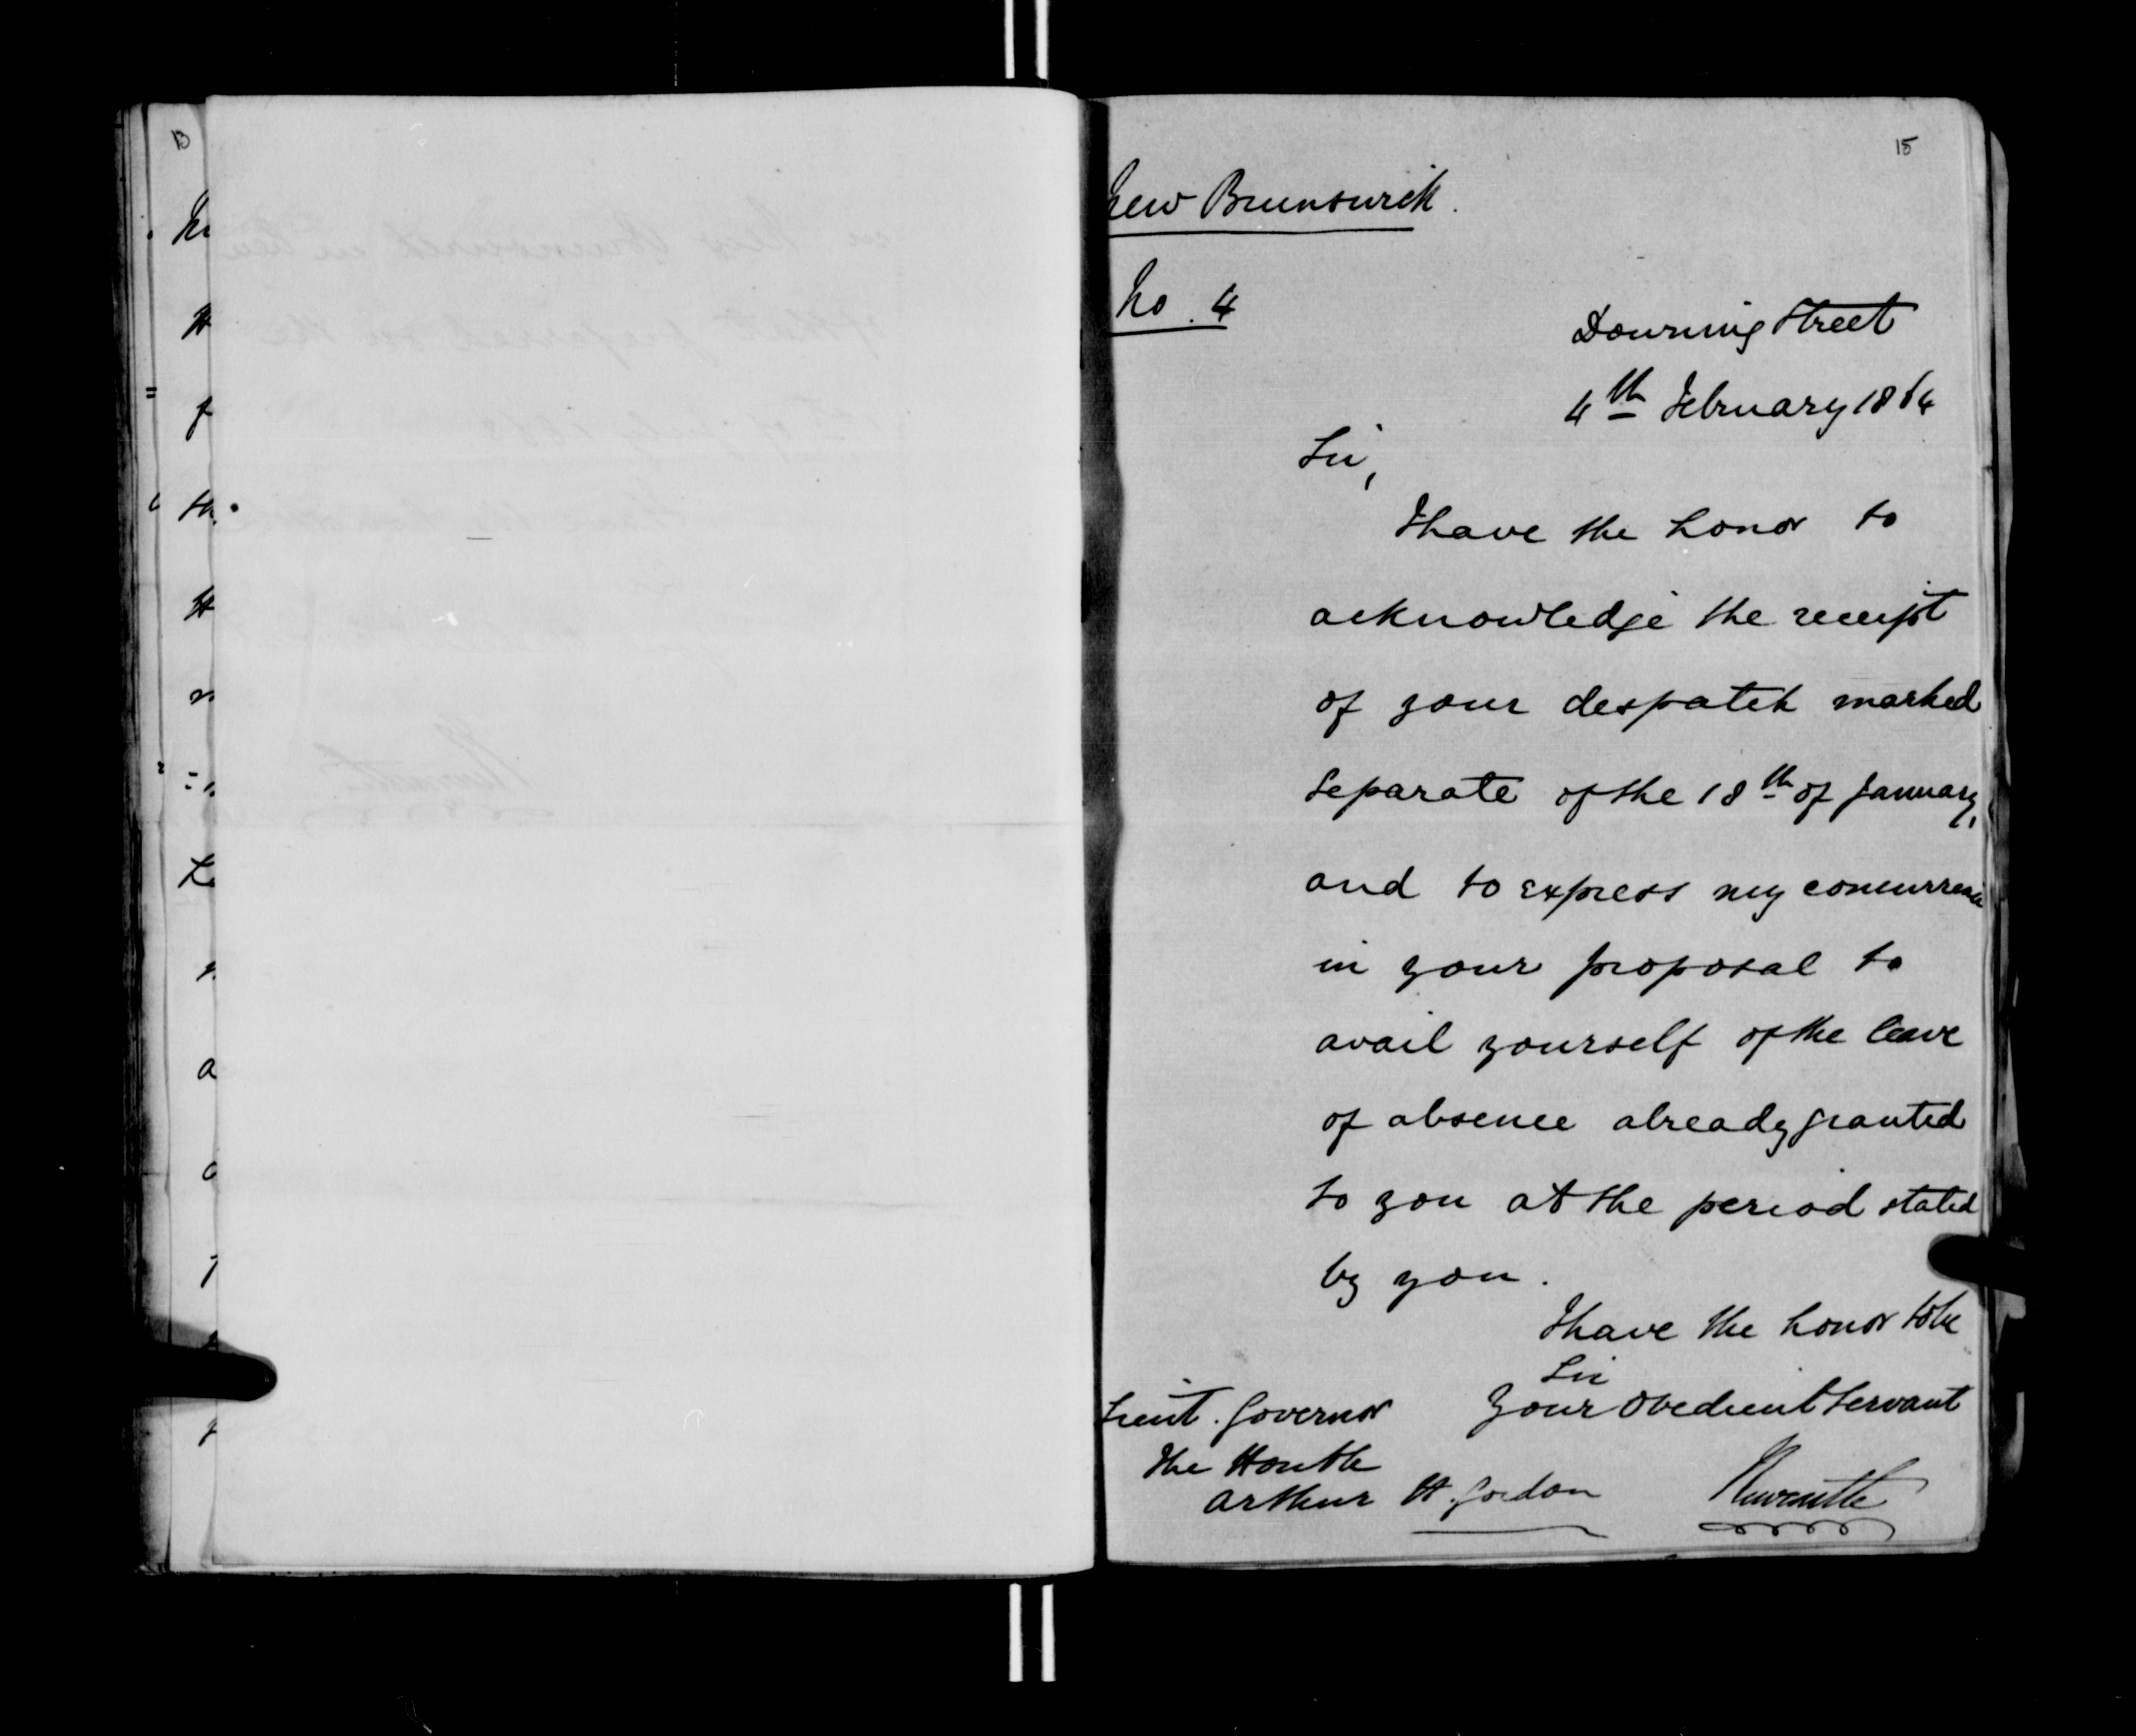 13
15
New Brunswick.
No. 4
Downing Street
4th February 1864
Sir,
I have the honor to
acknowledge the receipt
of your despatch marked
Separate of the 18th of January,
and to express my concurrence
in your proposal to
avail yourself of the leave
of absence already granted
to you at the period stated
by you.
I have the honor to be
Sir
Your Obedient Servant
Lieut. Governor
The Honble
Arthur H. Gordon
Newcastle